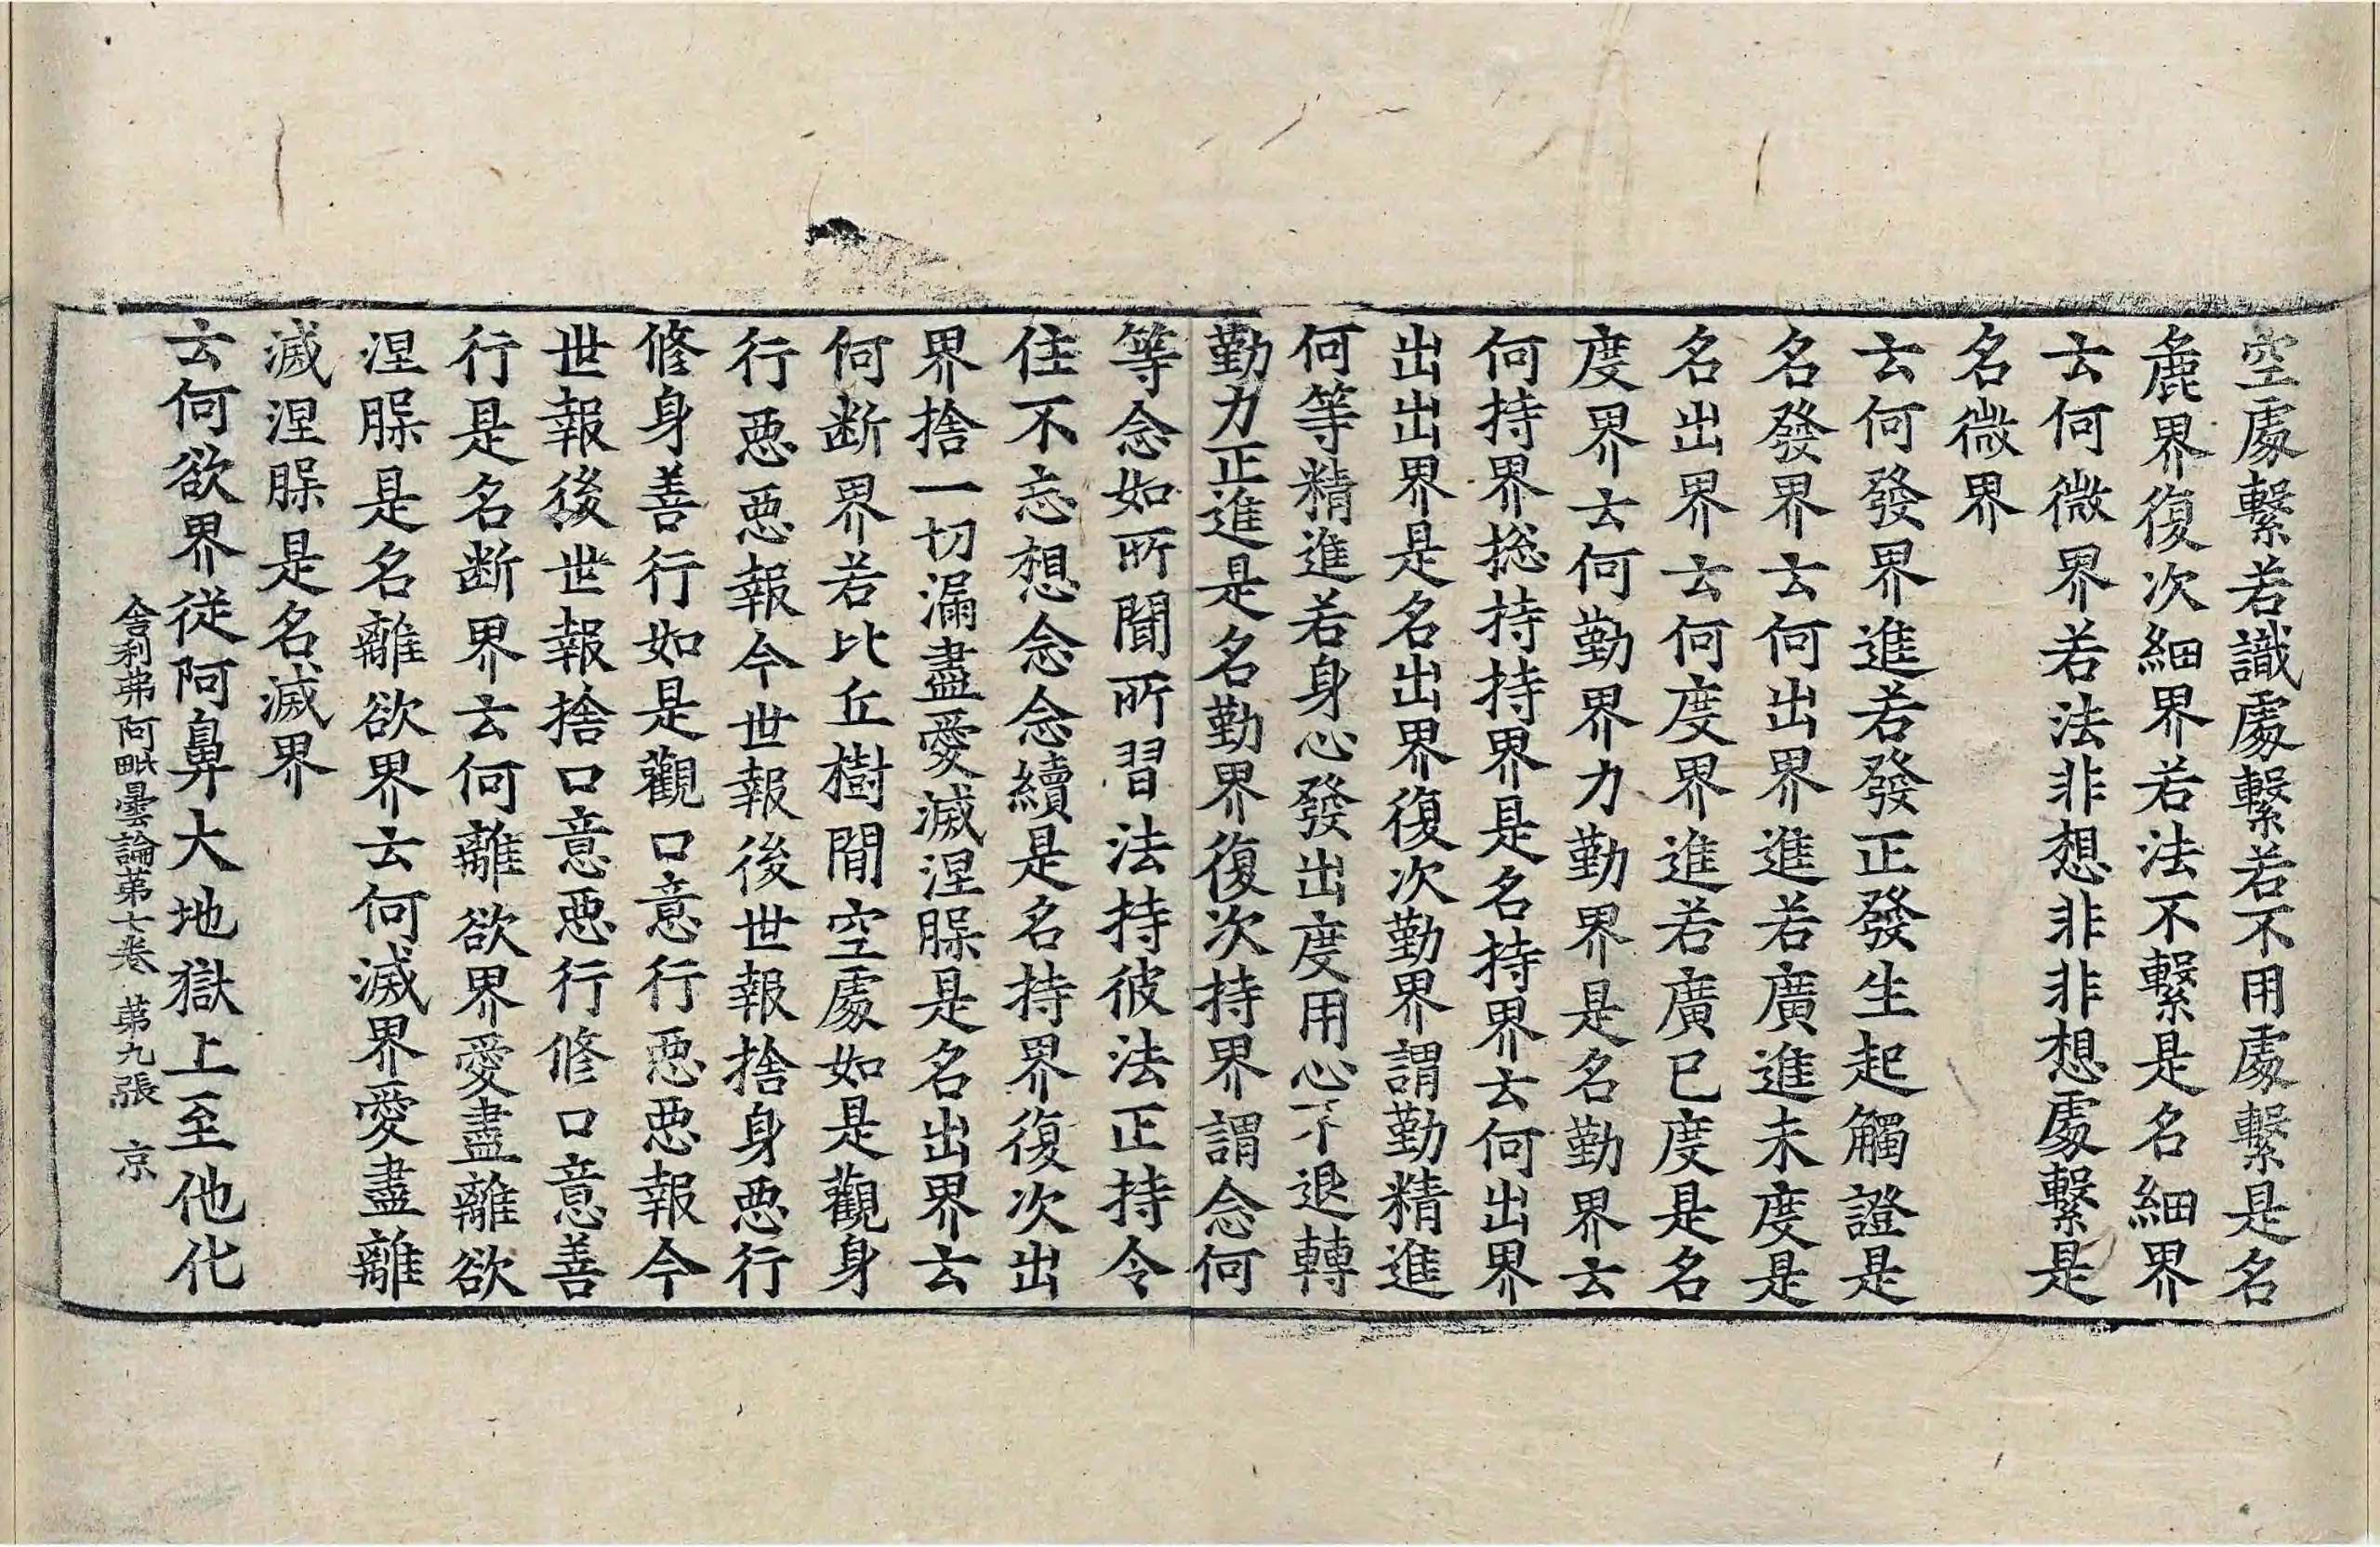 空處繫若識處繫若不用處繫是名
麁界復次細界若法不繫是名細界
云何微界若法非想非非想處繫是
名微界
云何發界進若發正發生起觸證是
名發界云何出界進若廣進未度是
名出界云何度界進若廣已度是名
度界云何勤界力勤界是名勤界云
何持界捴持持界是名持界云何出界
出出界是名出界復次勤界謂勤精進
何等精進若身心發出度用心不退轉
勤力正進是名勤界復次持界謂念何
等念如所聞所習法持彼法正持令
住不忘想念念續是名持界復次出
界捨一切漏盡愛滅涅槃是名出界云
何断界若比丘樹間空處如是觀身
行惡惡報今世報後世報捨身惡行
修身善行如是觀口意行惡惡報今
世報後世報捨口意惡行修口意善
行是名断界云何離欲界愛盡離欲
涅槃是名離欲界云何滅界愛盡離
滅涅槃是名滅界
云何欲界從阿鼻大地獄上至他化
舍利弗阿毗曇論第七卷 第九張 京